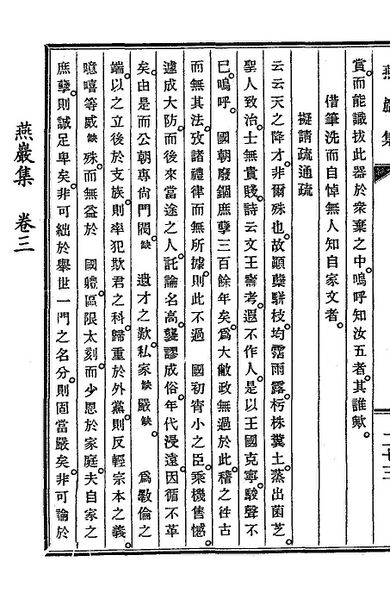 燕巖集
二七三
賞。而能識拔此器於衆棄之中。嗚呼知汝五者。其誰歟。
借筆洗而自悼無人知自家文者。
擬請疏通疏
云云天之降才。非爾殊也。故顚蘖騈枝。均霑雨露。朽株糞土。蒸出菌芝。
聖人致治。士無貴賤。詩云文王壽考。遐不作人。是以王國克寧。駿聲不
已。嗚呼。 國朝廢錮庶孼三百餘年矣。爲大敝政無過於此。稽之往古
而無其法。攷諸禮律而無所據。則此不過 國初宵小之臣。乘機售憾
遽成大防。而後來當途之人。託論名高。襲謬成俗。年代浸遠。因循不革
矣。由是而公朝專尙門閥。缺 遺才之歎。私家缺嚴缺。 爲斁倫之
端。以之立後於支族。則率犯欺君之科。歸重於外黨。則反輕宗本之義。
噫嘻等威缺殊。而無益於 國體。區限太刻。而少恩於家庭。夫自家之
庶孼。則誠足卑矣。非可絀於擧世。一門之名分。則固當嚴矣。非可論於
燕巖集 卷三